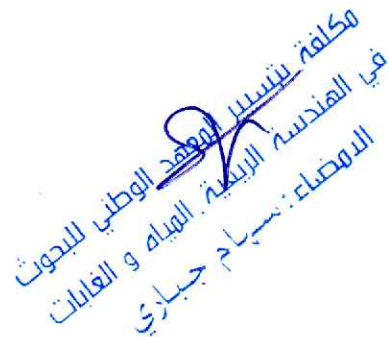 مكلفة بتسيير المعهد الوطني للبحوث
في الهندسة الريفية المياه و الغابات
الامضاء: سهام جباري